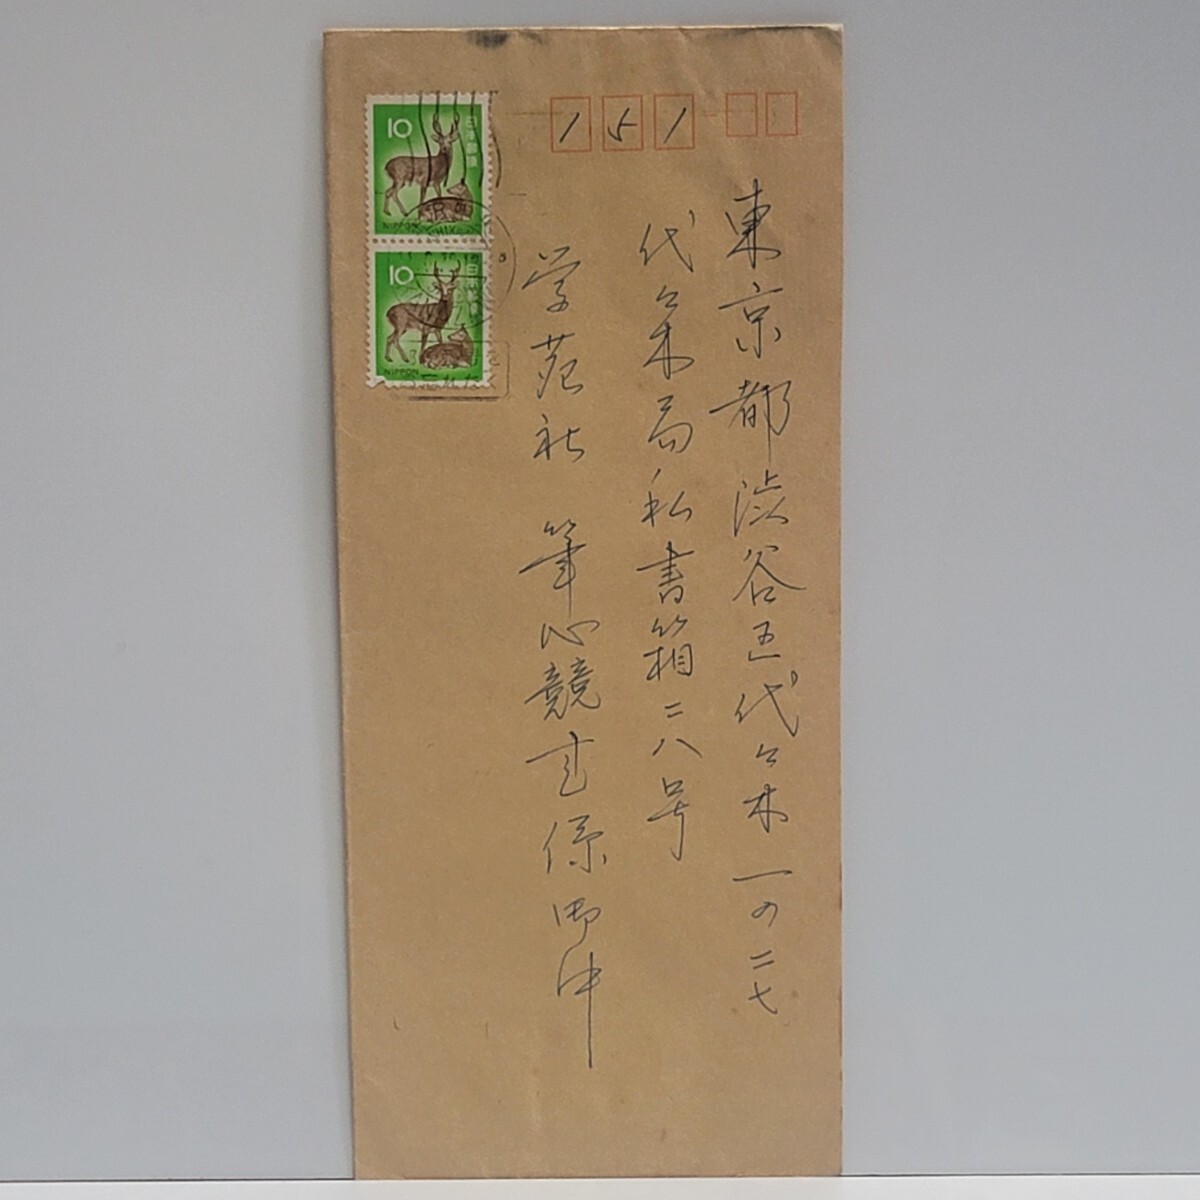 151
東京都渋谷区代々木一の二七
代々木局私書箱二八号
学苑社 筆心競書係御中
10
日本郵便
NIPPON
10
日本郵便
NIPPON